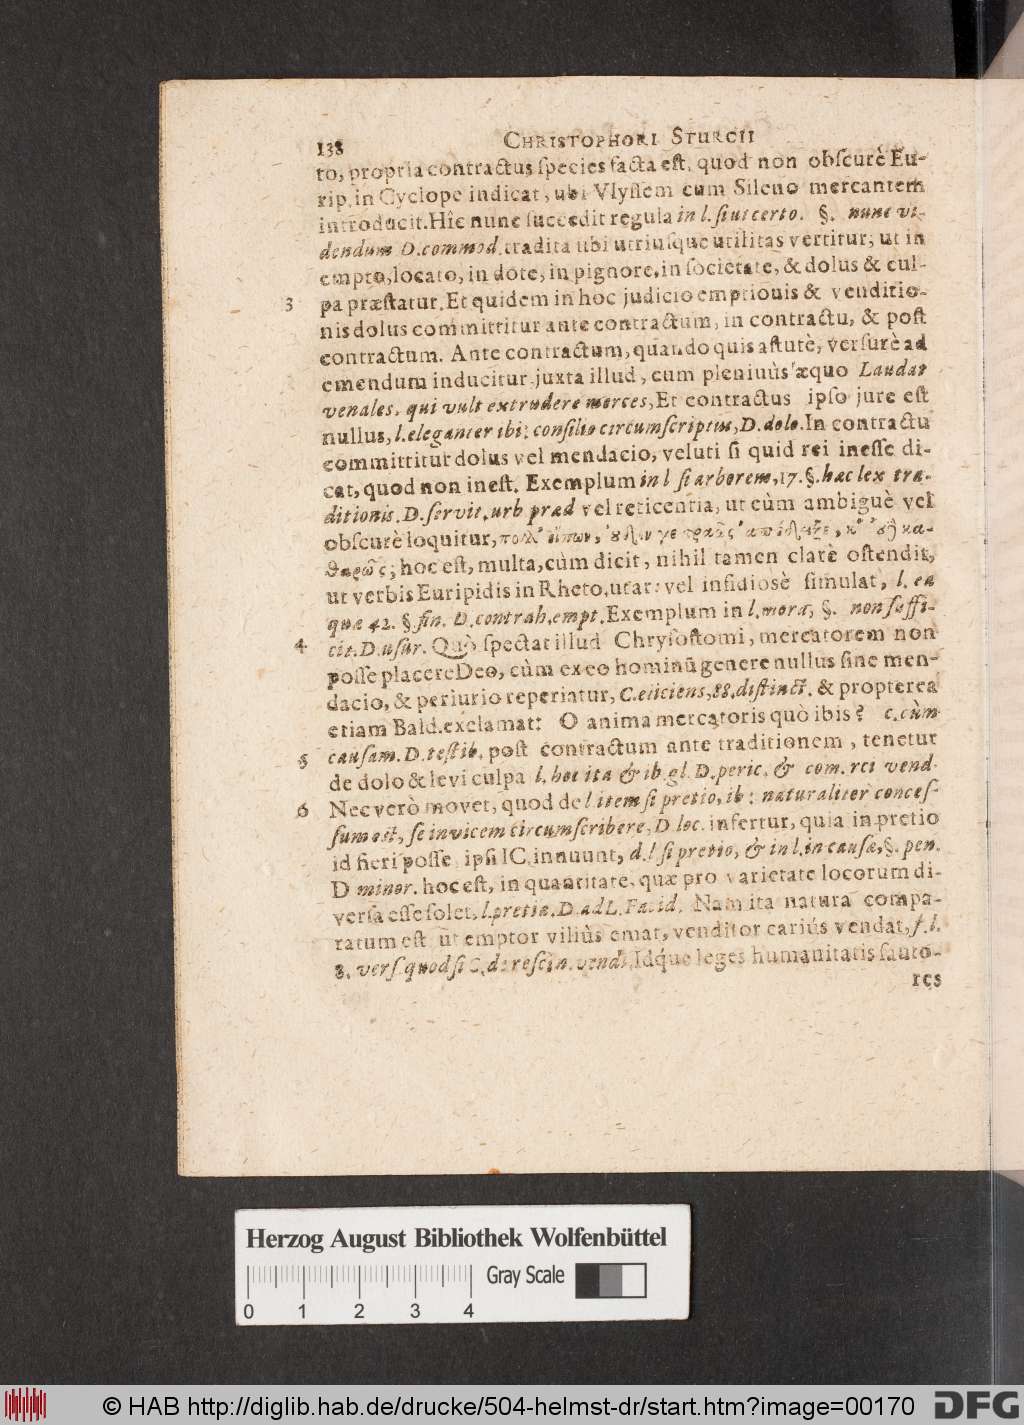 138 CHRISTOPHORI STURCII
to, propria contractus species facta est, quod non obscurè Eu-
rip. in Cyclope indicat, ubi Vlyssem cum Sileno mercantem
introducit. Hîc nunc succedit regula in l. si ut certo. §. nunc vi-
dendum D. commod. tradita ubi utriusque utilitas vertitur, ut in
empto, locato, in dote, in pignore, in societate, & dolus & cul-
3 pa præstatur. Et quidem in hoc judicio emptionis & venditio-
nis dolus committitur ante contractum, in contractu, & post
contractum. Ante contractum, quando quis astutè, versutè ad
emendum inducitur juxta illud, cum pleniùs æquo Laudat
venales, qui vult extrudere merces, Et contractus ipso jure est
nullus, l. eleganter ibi: consilio circumscriptus, D. dolo. In contractu
committitur dolus vel mendacio, veluti si quid rei inesse di-
cat, quod non inest. Exemplum in l si arborem, 17. §. hac lex tra-
ditionis. D. servit. urb præd vel reticentia, ut cùm ambiguè vel
obscurè loquitur,
hoc est, multa, cùm dicit, nihil tamen clarè ostendit,
ut verbis Euripidis in Rheto. utar: vel insidiosè simulat, l. ea
quæ 42. § fin. D. contrah. empt. Exemplum in l. mora, §. non suffi-
4 cit. D. usur. Quò spectat illud Chrysostomi, mercatorem non
posse placere Deo, cùm ex eo hominū genere nullus sine men-
dacio, & periurio reperiatur, C. eiiciens, 88. distinct. & propterea
etiam Bald. exclamat: O anima mercatoris quò ibis? c. cùm
5 causam. D. testib. post contractum ante traditionem, tenetur
de dolo & levi culpa l. hoc ita & ib. gl. D. peric. & com. rei vend.
6 Nec verò movet, quod de l item si pretio, ib: naturaliter conces-
sum est, se invicem circumscribere, D loc. infertur, quia in pretio
id fieri posse ipsi IC. innuunt, d. l si pretio, & in l. in causæ, §. pen.
D minor. hoc est, in quantitate, quæ pro varietate locorum di-
versa esse solet, l. pretia. D. ad L. Falcid. Nam ita natura compa-
ratum est ut emptor viliùs emat, venditor cariùs vendat, f. l.
8. vers. quod si C. de rescin. vend. Idq́ue leges humanitatis fauto-
res
Herzog August Bibliothek Wolfenbüttel
Gray Scale
0 1 2 3 4
© HAB http://diglib.hab.de/drucke/504-helmst-dr/start.htm?image=00170
DFG